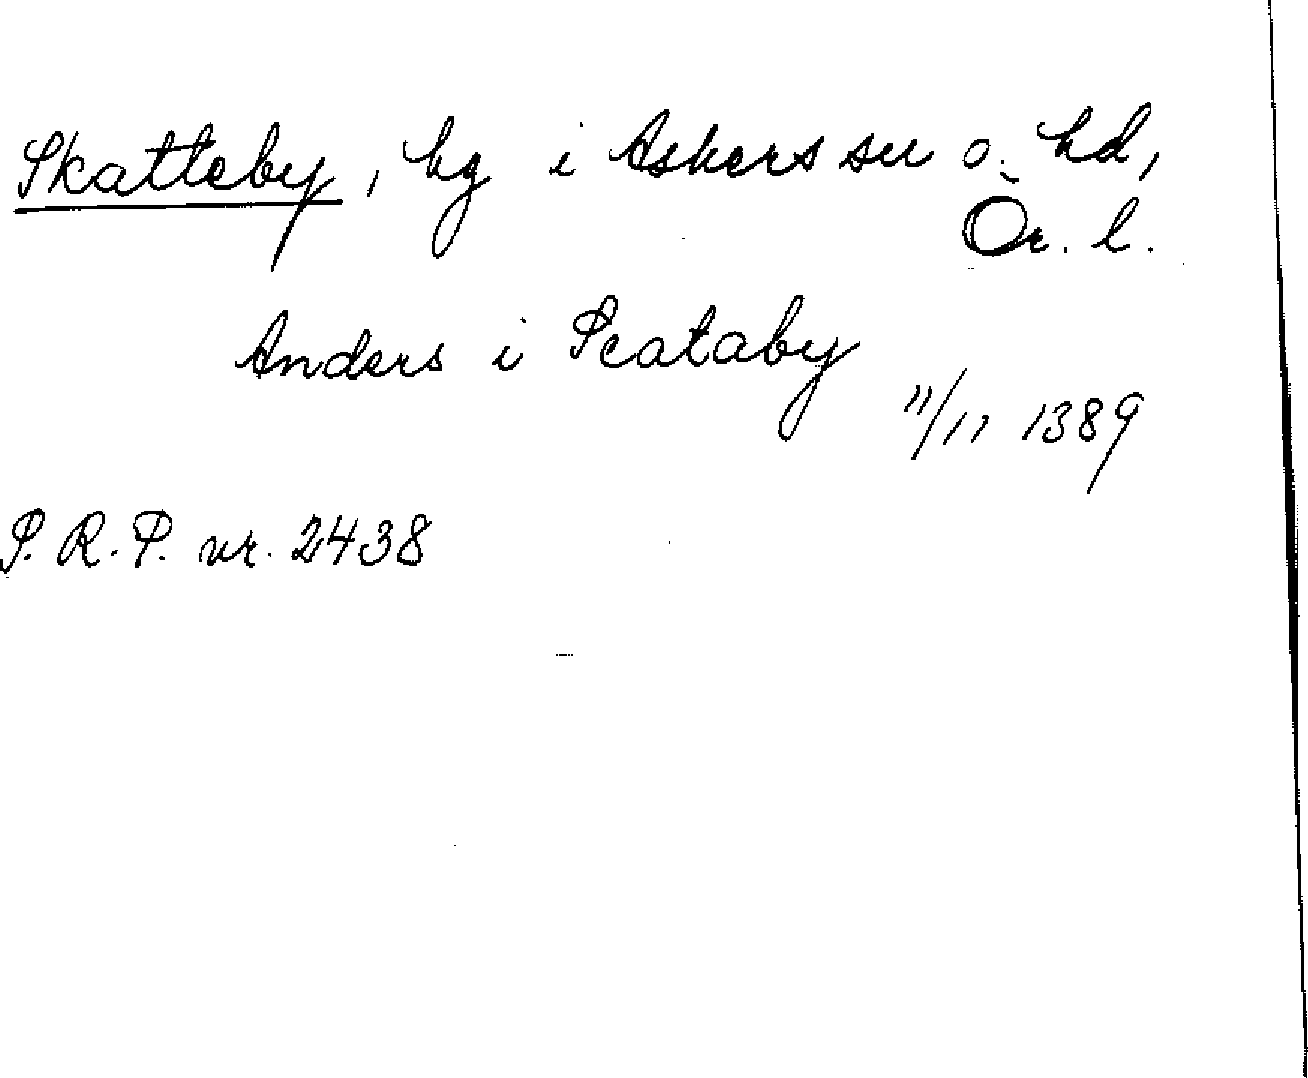 Skatteby, hg i Askers sn o. hd,
Ör. l.
Anders i Scataby
11/11 1389
P. R. P. nr. 2438